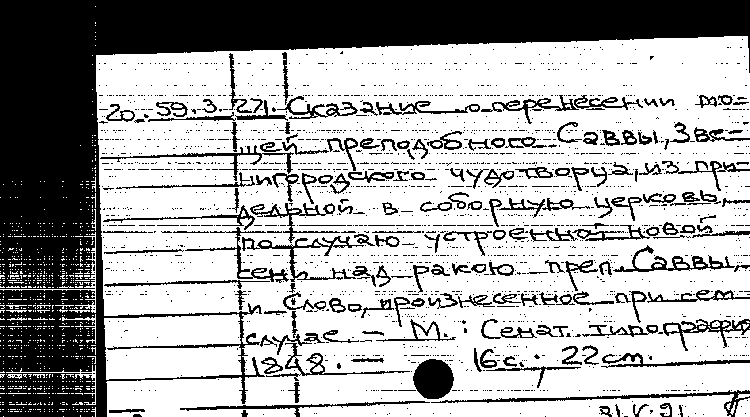 20.59.3.271. Сказание о перенесении мо-
щей преподобного Саввы, Зве-
нигородского чудотворца, из при-
дельной в соборную церковь,
по случаю устроенной новой
сени над ракою преп. Саввы,
и Слово, произнесенное при сем
случае. – М.: Сенат. типография
1848. – 16 с.; 22 см.